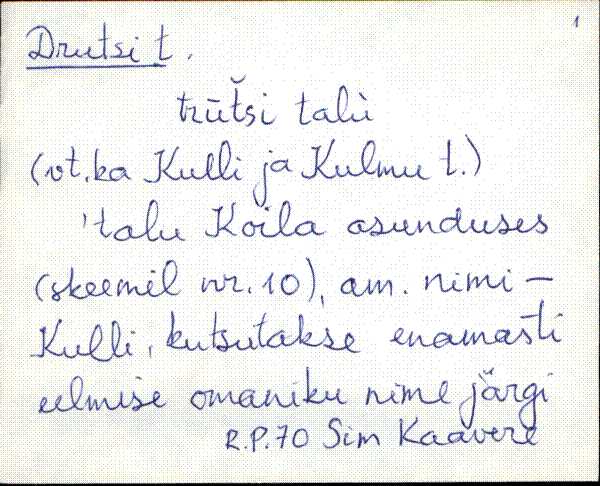 1
Drutsi t.
trūt̆si talù
(vt. ka Kulli ja Kulmu t.)
'talu Koila asunduses
(skeemil nr. 10), am. nimi –
Kulli, kutsutakse enamasti
eelmise omaniku nime järgi
R.P. 70 Sim Kaavere